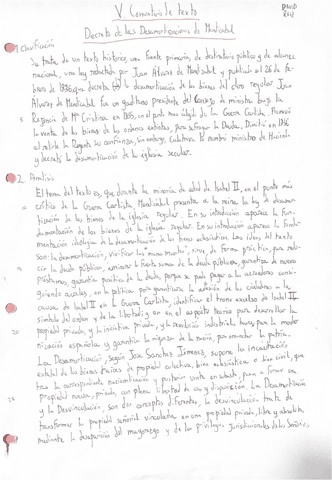 V Comentario de texto
Decreto de las Desamortizaciones de Mendizabal
1. Clasificación
Se trata de un texto histórico, una fuente primaria, de destinatario público y de alcance
nacional, una ley redactada por Juan Álvarez de Mendizabal y publicada el 26 de fe-
brero de 1836 que decreta la desamortización de los bienes del clero regular. Juan
Álvarez de Mendizabal fue un gaditano presidente del Consejo de ministros bajo la
Regencia de Mª Cristina en 1835, en el punto más álgido de la Guerra Carlista. Promovió
la venta de los bienes de las ordenes para sufragar la Deuda. Dimitió en 1836
al retirarle la Regente su confianza, sin embargo, Calatrava lo nombró ministro de Hacienda
y decretó la desamortización de la iglesia secular.
2. Análisis
El tema del texto es, que durante la minoría de edad de Isabel II, en el punto más
crítico de la Guerra Carlista, Mendizabal presenta a la reina la ley de desamor-
tización de los bienes de la iglesia regular. En su introducción aparece la fun-
damentación de los bienes de la iglesia regular. En su introducción aparece la funda-
mentación ideológica de la desamortización de los bienes eclesiásticos. Las ideas del texto
son: la desamortización, vivificar las "manos muertas", de forma práctica, para redu-
cir la deuda pública, la deuda pública, garantía de nuevos
préstamos, garantía positiva de la deuda, porque se podía pagar a los acreedores consi-
guiendo avales, en la política para garantizar la adhesión de los ciudadanos a la
causa de Isabel II en la Guerra Carlista, identificar el trono excelso de Isabel II
símbolo del orden y de la libertad, y en el aspecto teórico para desarrollar la
propiedad privada, y la iniciativa privada, y la revolución industrial, bases para la moder-
nización española, y garantía la de la nación, por la patria.
La Desamortización, según José Sánchez Jiménez, supone la incautación
estatal de los bienes raíces de propiedad colectiva, bien eclesiástica o bien civil, que
tras la correspondiente nacionalización y posterior venta en subasta, pasa a formar una
propiedad nueva, privada, con plena libertad de uso y disposición. La Desamortización
y la Desvinculación, son dos conceptos diferentes, la desvinculación trata de
transformar la propiedad señorial vinculada en una propiedad privada, libre y absoluta,
mediante la desaparición del mayorazgo y de los privilegios jurisdiccionales de los Señores.
20